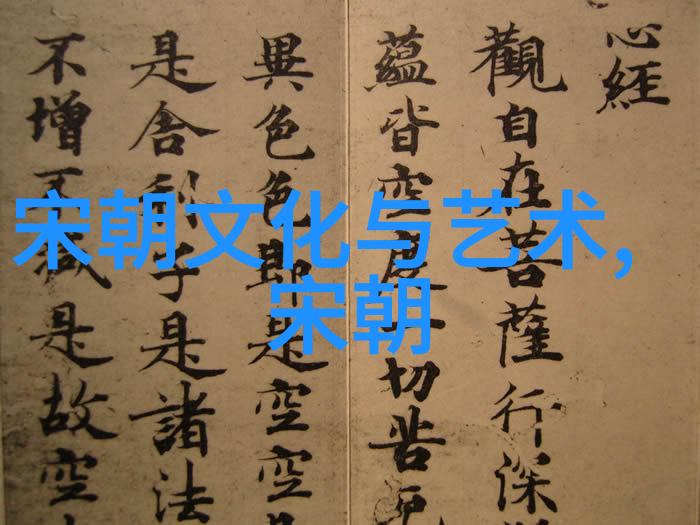 宋朝文化与艺术,
宋朝
心經
觀自在菩薩行深
蘊皆空度一切苦厄
異色色即是空空
是舍利子是諸法
不增不減是故空